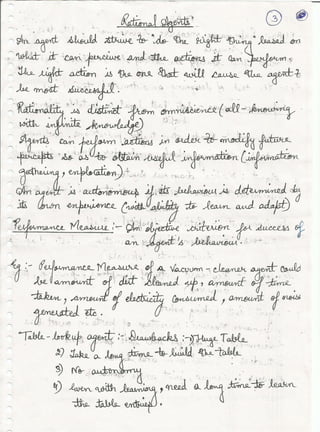 Rational Agents
3
An agent should strive to "do the right thing" based on
what it can perceive and the actions it can perform.
The right action is the one that will cause the agent to
be most successful.
Rationality is distinct from omniscience (all-knowing
with infinite knowledge)
Agents can perform actions in order to modify future
percepts so as to obtain useful information (information
gathering, exploration)
An agent is autonomous if its behaviour is determined by
its own experience (with ability to learn and adapt)
Performance Measure :- An objective criterion for success of
an agent's behaviour.
Eg :- Performance Measure of a vacuum-cleaner agent could
be amount of dirt cleaned up, amount of time
taken, amount of electricity consumed, amount of noise
generated etc.
Table-lookup agent :- Drawbacks :- 1) Huge Table
2) Take a long time to build the table
3) No autonomy
4) even with learning, need a long time to learn
the table entries.